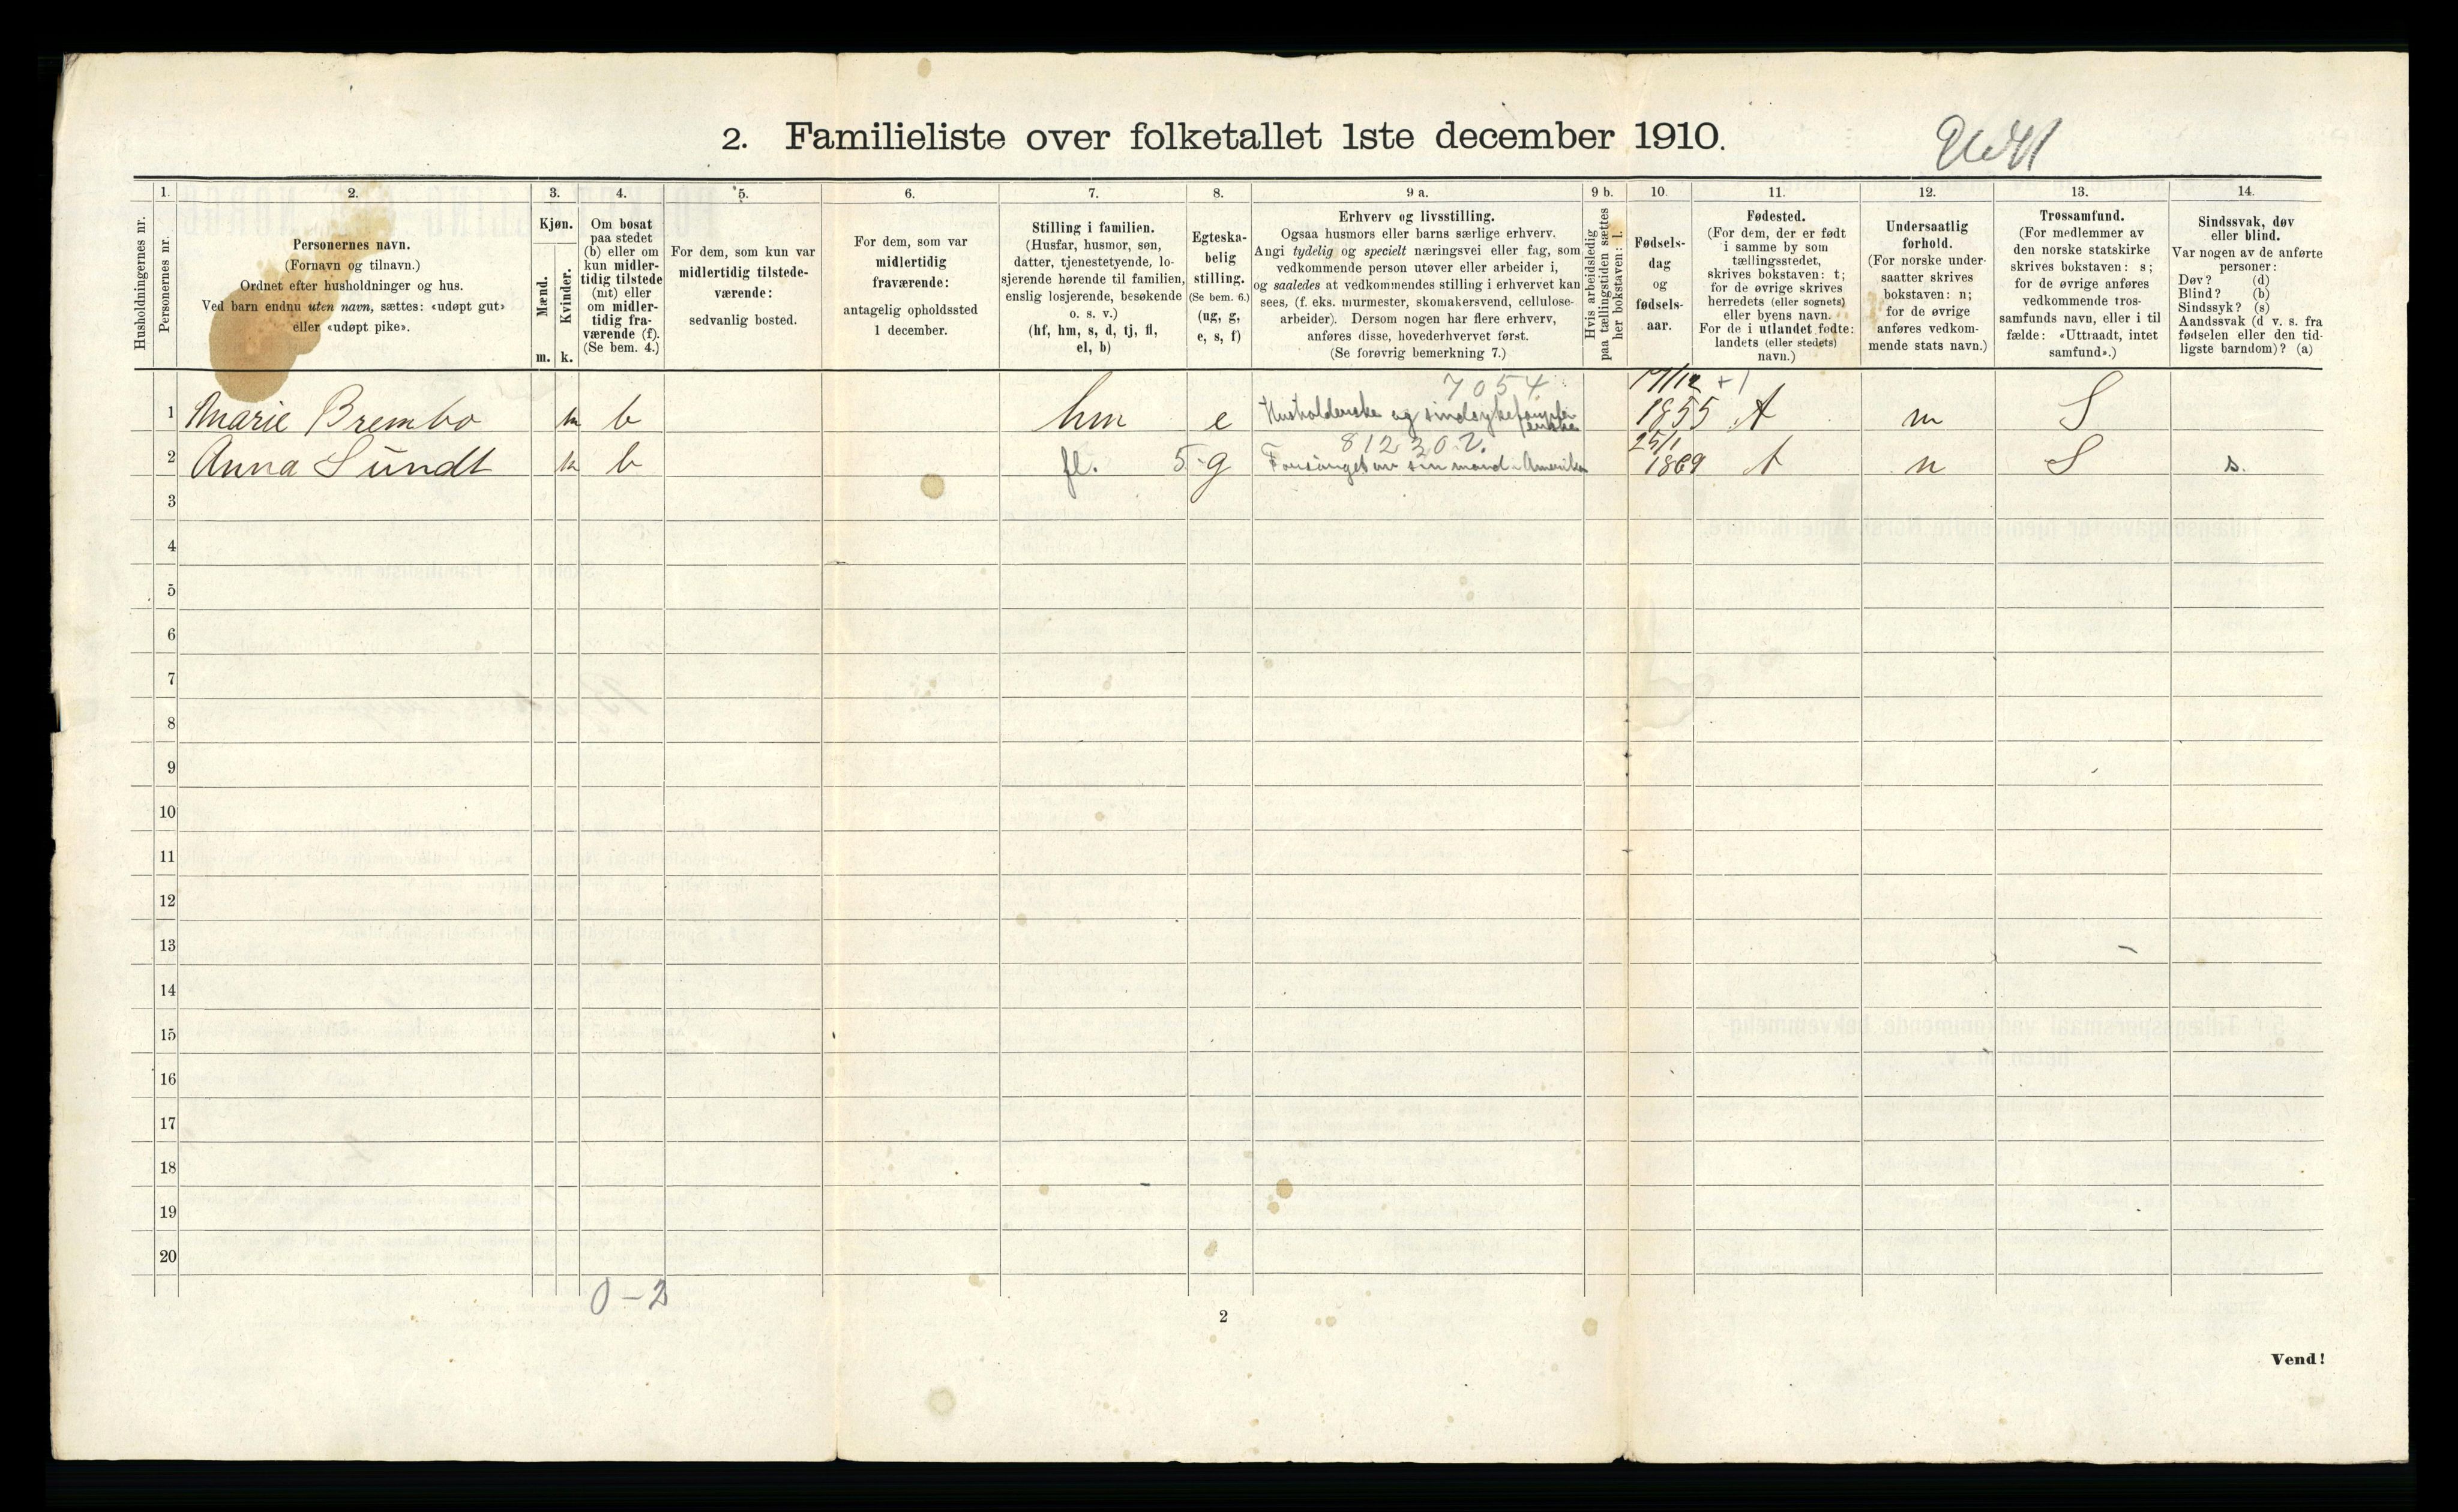 2. Familieliste over folketallet 1ste december 1910.
1. 2. 3. 4. 5. 6. 7. 8. 9 a. 9 b. 10. 11. 12. 13. 14.
Husholdningernes nr.
Personernes nr.
Personernes navn.
(Fornavn og tilnavn.)
Ordnet efter husholdninger og hus.
Ved barn endnu uten navn, sættes: «udøpt gut»
eller «udøpt pike».
Kjøn.
Mænd.
Kvinder.
m. k.
Om bosat
paa stedet
(b) eller om
kun midler-
tidig tilstede
(mt) eller
om midler-
tidig fra-
værende (f).
(Se bem. 4.)
For dem, som kun var
midlertidig tilstede-
værende:
sedvanlig bosted.
For dem, som var
midlertidig
fraværende:
antagelig opholdssted
1 december.
Stilling i familien.
(Husfar, husmor, søn,
datter, tjenestetyende, lo-
sjerende hørende til familien,
enslig losjerende, besøkende
o. s. v.)
(hf, hm, s, d, tj, fl,
el, b)
Egteska-
belig
stilling.
(Se bem. 6.)
(ug, g,
e, s, f)
Erhverv og livsstilling.
Ogsaa husmors eller barns særlige erhverv.
Angi tydelig og specielt næringsvei eller fag, som
vedkommende person utøver eller arbeider i,
og saaledes at vedkommendes stilling i erhvervet kan
sees, (f. eks. murmester, skomakersvend, cellulose-
arbeider). Dersom nogen har flere erhverv,
anføres disse, hovederhvervet først.
(Se forøvrig bemerkning 7.)
Hvis arbeidsledig
paa tællingstiden sættes
her bokstaven: l.
Fødsels-
dag
og
fødsels-
aar.
Fødested.
(For dem, der er født
i samme by som
tællingsstedet,
skrives bokstaven: t;
for de øvrige skrives
herredets (eller sognets)
eller byens navn.
For de i utlandet fødte:
landets (eller stedets)
navn.)
Undersaatlig
forhold.
(For norske under-
saatter skrives
bokstaven: n;
for de øvrige
anføres vedkom-
mende stats navn.)
Trossamfund.
(For medlemmer av
den norske statskirke
skrives bokstaven: s;
for de øvrige anføres
vedkommende tros-
samfunds navn, eller i til
fælde: «Uttraadt, intet
samfund».)
Sindssvak, døv
eller blind.
Var nogen av de anførte
personer:
Døv? (d)
Blind? (b)
Sindssyk? (s)
Aandssvak (d v. s. fra
fødselen eller den tid-
ligste barndom)? (a)
7054 17/12 +1
1 Marie Brembo k b hm e Husholderske og 1855 t n S
812302. 25/1
2 Anna Sundt k b fl. 5 g av sin mand i Amerika 1869 t n S s.
3
4
5
6
7
8
9
10
11
12
13
14
15
16
17
18
19
20
0-2
2
Vend!